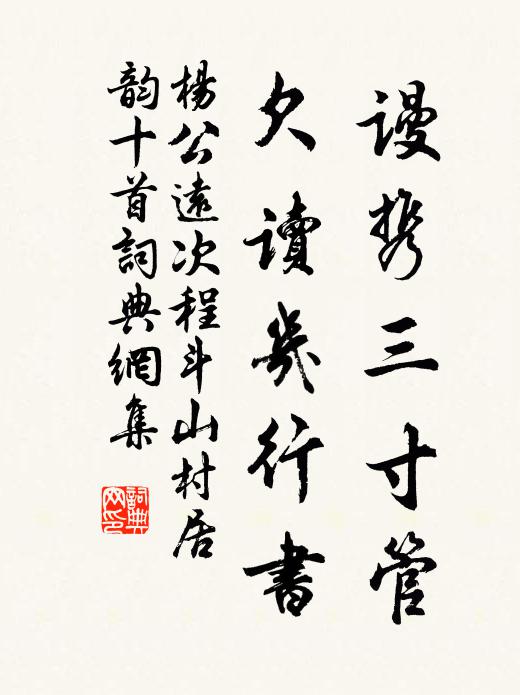 謾携三寸管
欠讀幾行書
楊公遠次程斗山村居
韵十首詞典網集
詞典
网印